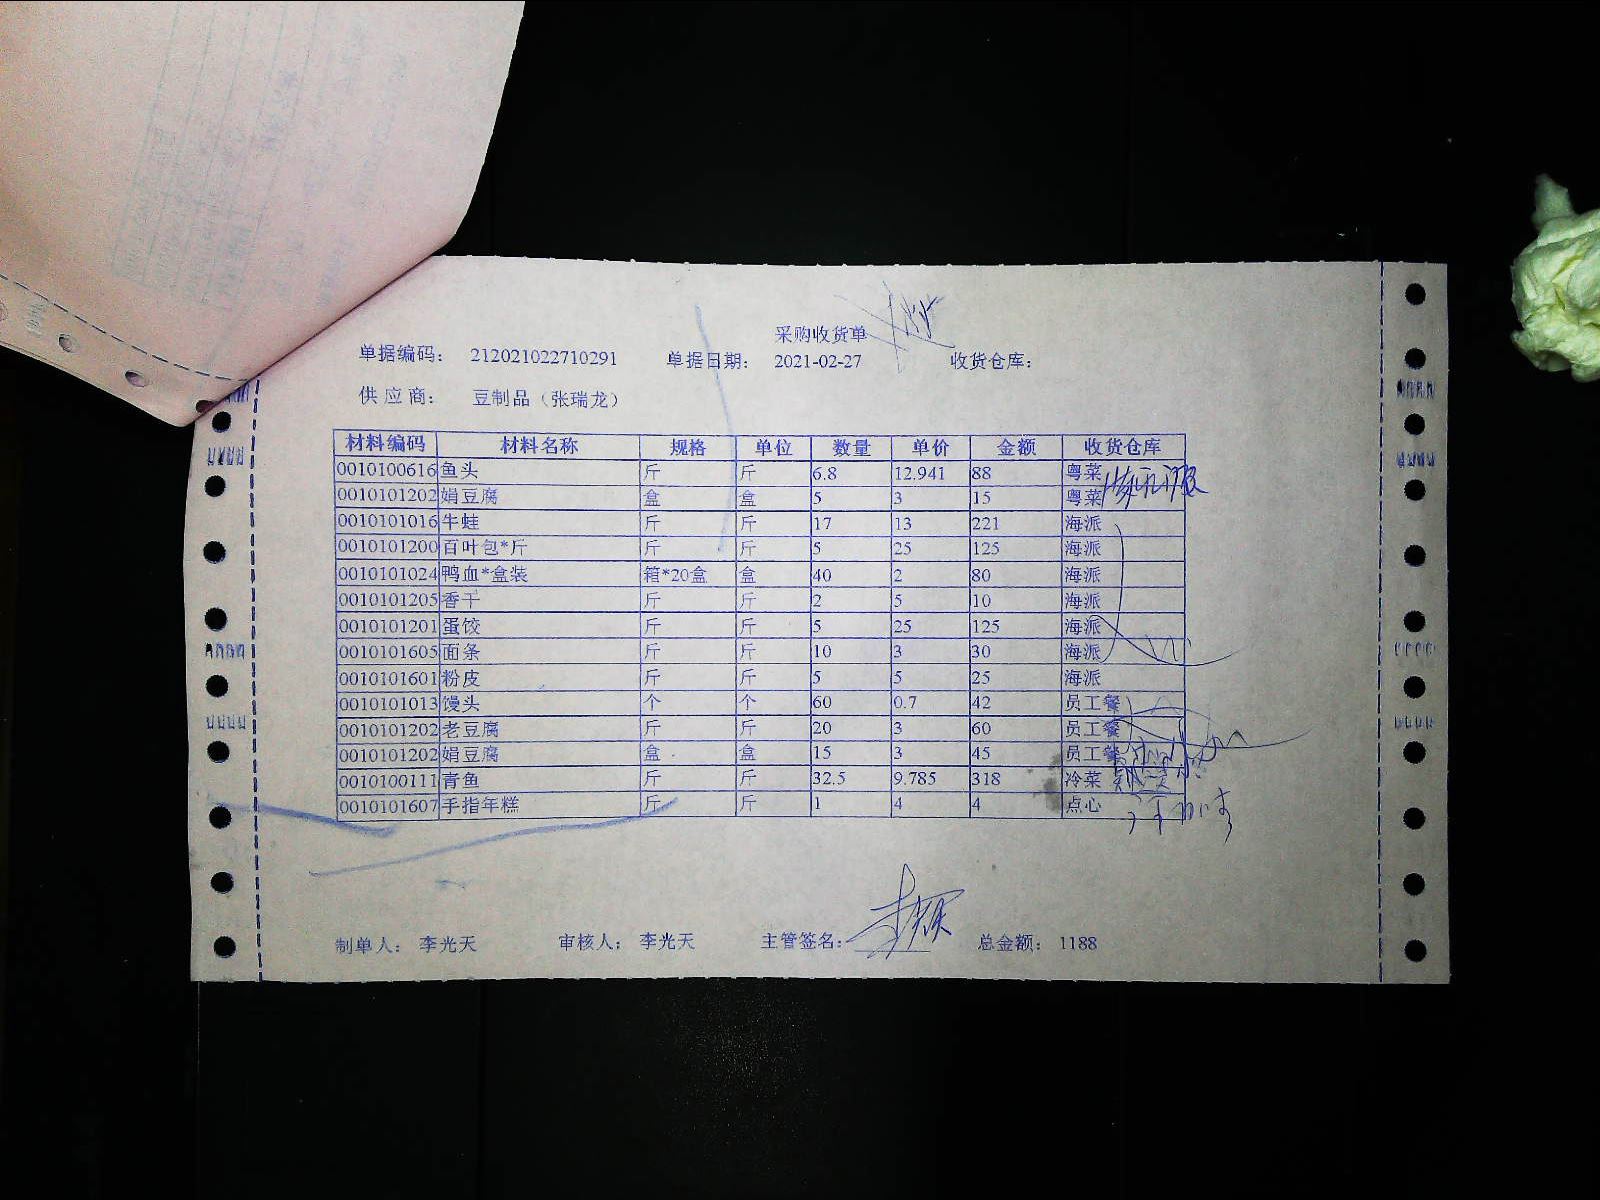 采购收货单
单据编码： 212021022710291 单据日期： 2021-02-27 收货仓库：
供应商： 豆制品（张瑞龙）
材料编码 材料名称 规格 单位 数量 单价 金额 收货仓库
0010100616 鱼头 斤 斤 6.8 12.941 88 粤菜
0010101202 娟豆腐 盒 盒 5 3 15 粤菜
0010101016 牛蛙 斤 斤 17 13 221 海派
0010101200 百叶包*斤 斤 斤 5 25 125 海派
0010101024 鸭血*盒装 箱*20盒 盒 40 2 80 海派
0010101205 香干 斤 斤 2 5 10 海派
0010101201 蛋饺 斤 斤 5 25 125 海派
0010101605 面条 斤 斤 10 3 30 海派
0010101601 粉皮 斤 斤 5 5 25 海派
0010101013 馒头 个 个 60 0.7 42 员工餐
0010101202 老豆腐 斤 斤 20 3 60 员工餐
0010101202 娟豆腐 盒 盒 15 3 45 员工餐
0010100111 青鱼 斤 斤 32.5 9.785 318 冷菜
0010101607 手指年糕 斤 斤 1 4 4 点心
制单人： 李光天 审核人： 李光天 主管签名： 总金额： 1188